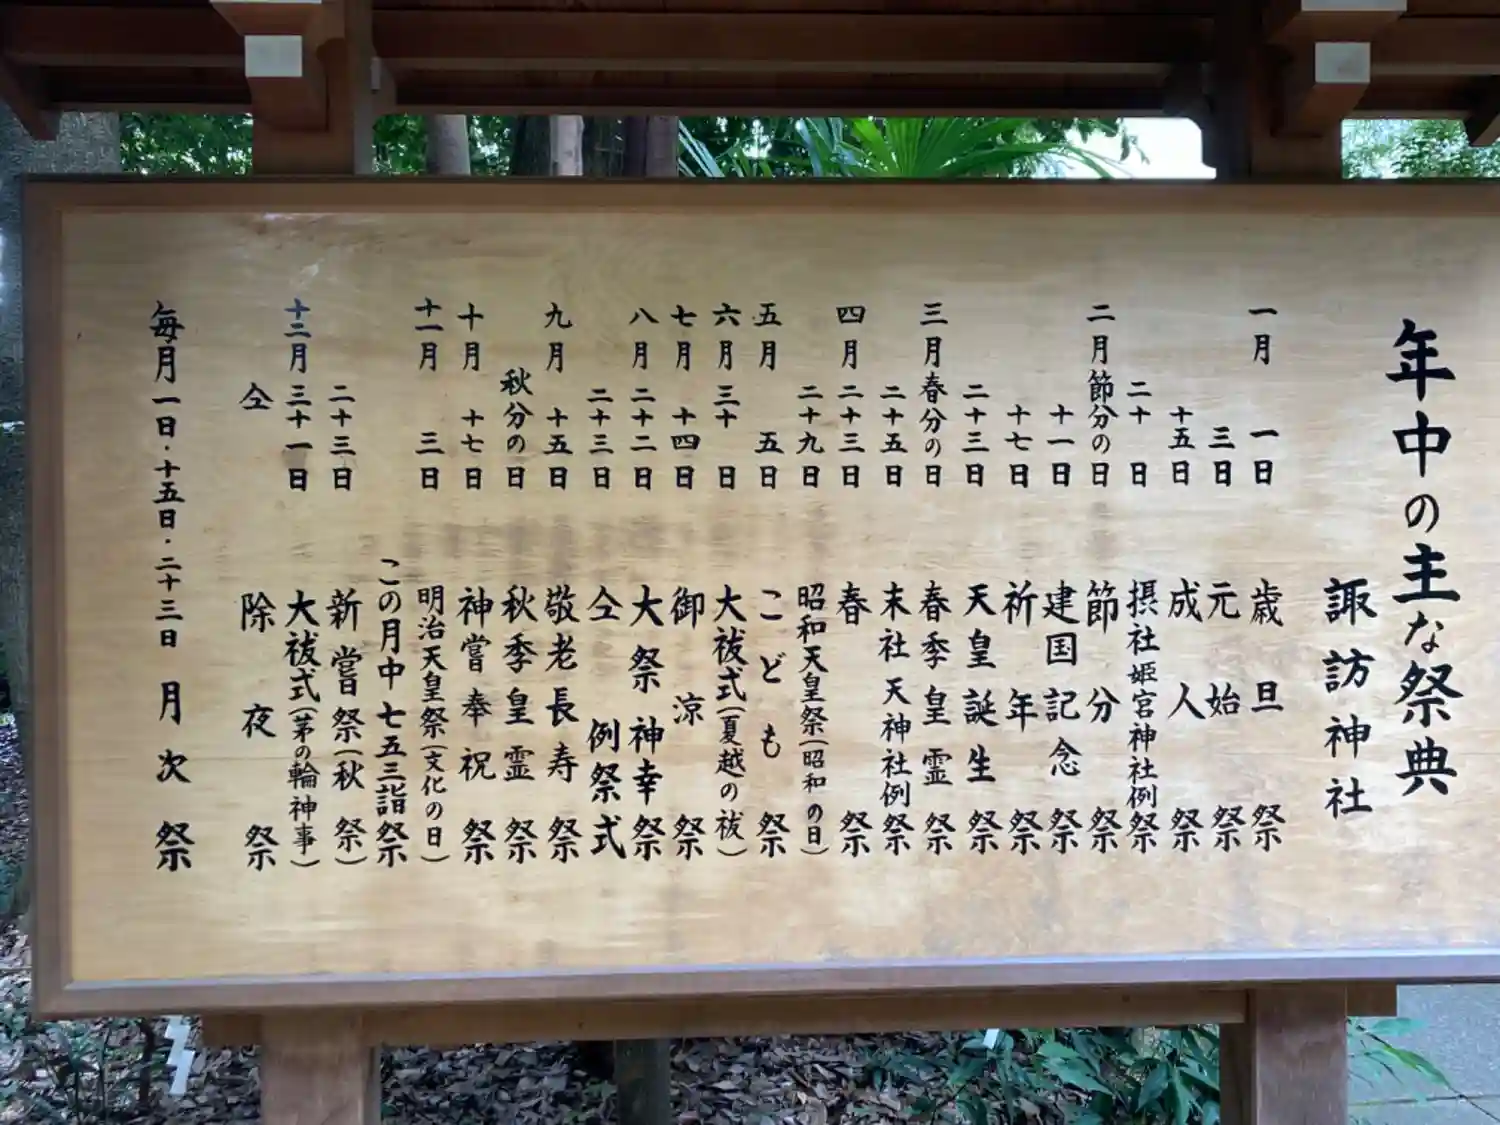 年中の主な祭典
諏訪神社
一月 一日 歳旦祭
三日 元始祭
十五日 成人祭
二十日 摂社姫宮神社例祭
二月節分の日 節分祭
十一日 建国記念祭
十七日 祈年祭
二十三日 天皇誕生祭
三月春分の日 春季皇霊祭
二十五日 末社天神社例祭
四月二十三日 春祭
二十九日 昭和天皇祭(昭和の日)
五月 五日 こども祭
六月三十日 大祓式(夏越の祓)
七月 十四日 御涼祭
八月二十二日 大祭神幸祭
二十三日 仝例祭式
九月 十五日 敬老長寿祭
秋分の日 秋季皇霊祭
十月 十七日 神嘗奉祝祭
十一月 三日 明治天皇祭(文化の日)
この月中七五三詣祭
二十三日 新嘗祭(秋祭)
十二月三十一日 大祓式(茅の輪神事)
仝 除夜祭
毎月一日・十五日・二十三日 月次祭